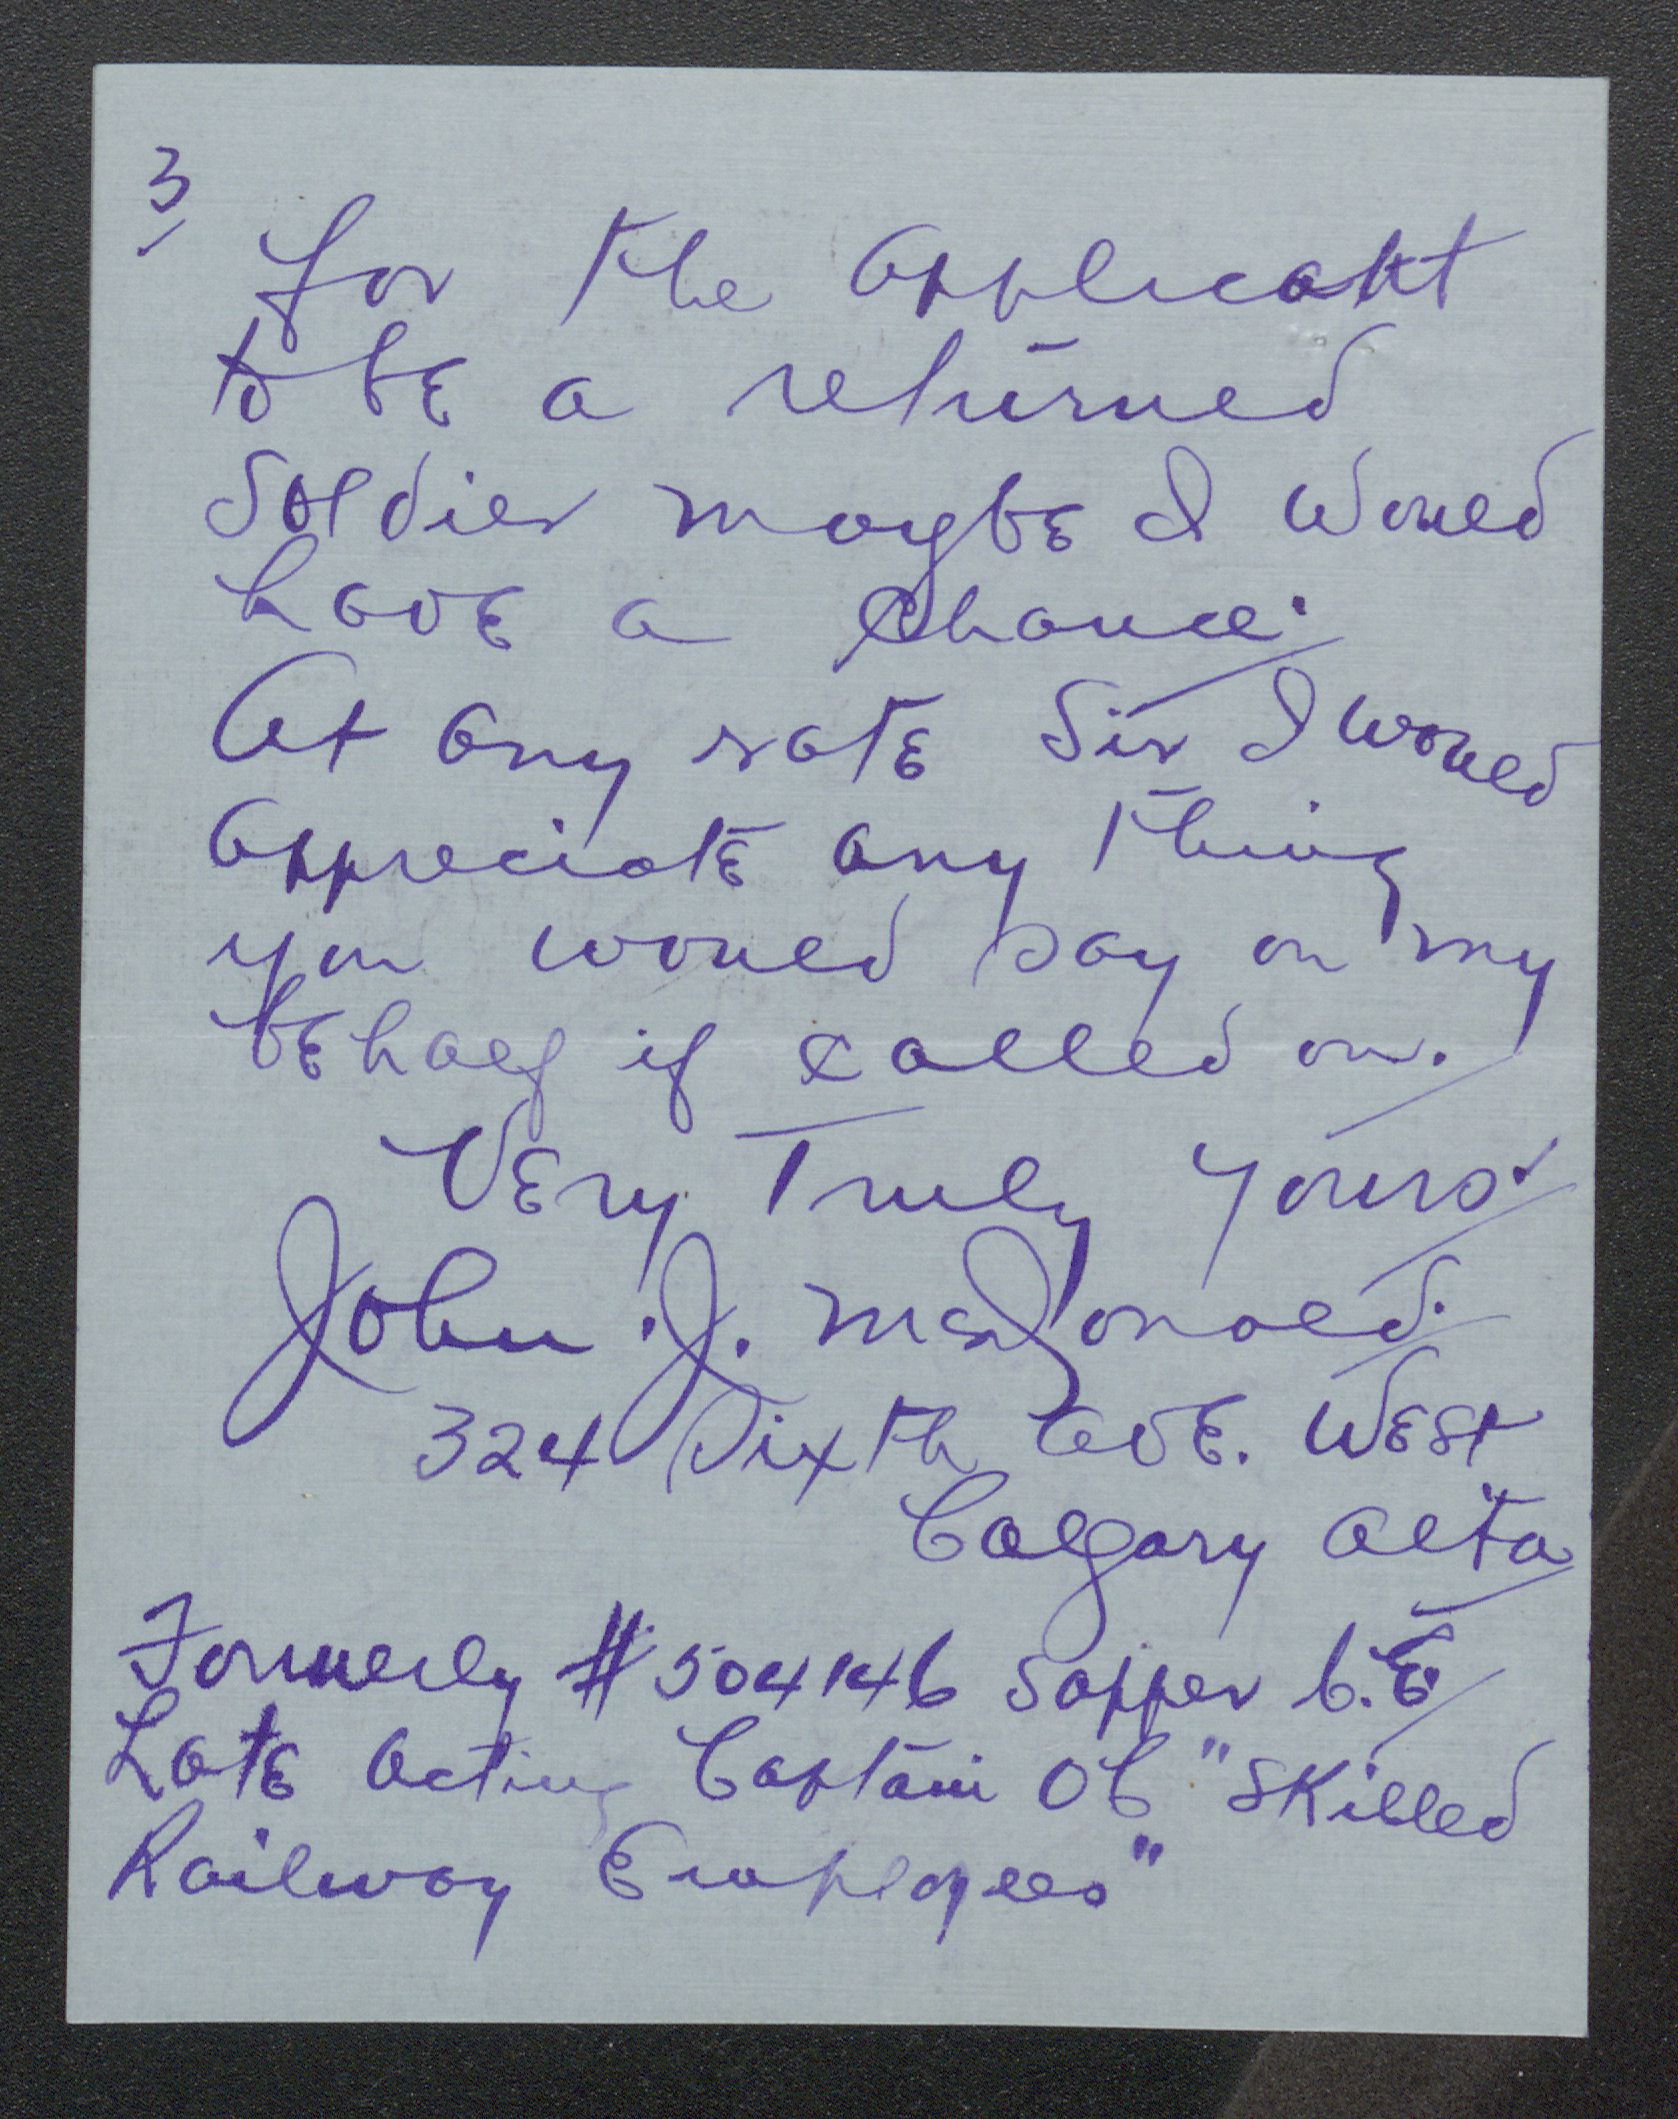 3
for the applicant
to be a returned
Soldier maybe I would
have a chance.
At any rate Sir I would
appreciate any thing
you would say on my
behalf if called on.
Very Truly Yours.
John . J. McDonald.
324 Sixth Ave. West
Calgary Alta
Formerly #504146 Sapper C.E.
Late Acting Captain OC "Skilled
Railway Employees"